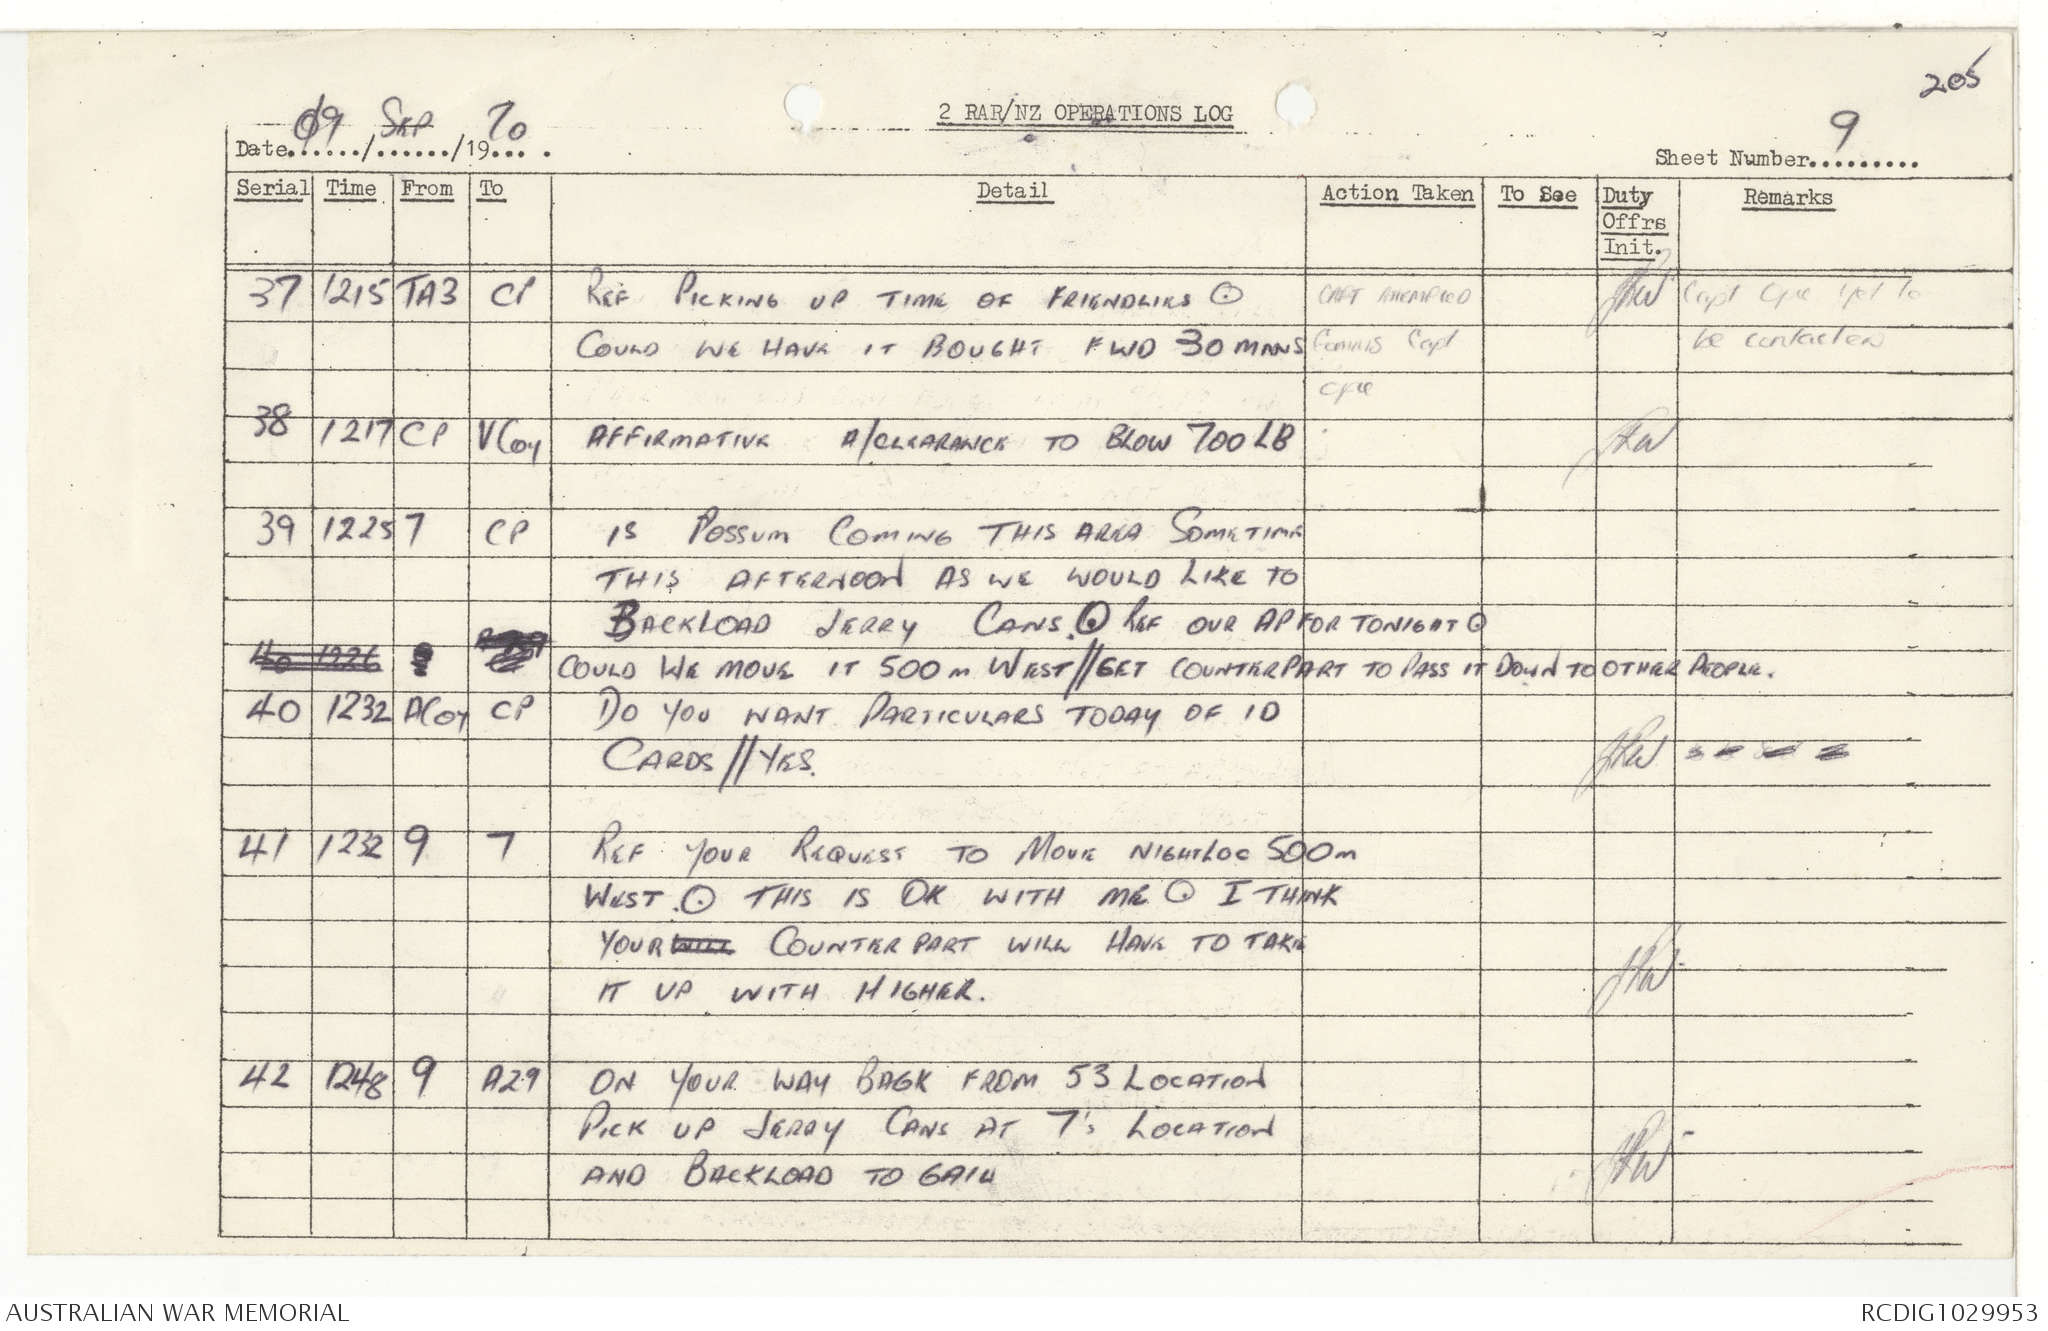 205
2 RAR/NZ OPERATIONS LOG
Date 09 / SEP / 1970
Sheet Number 9
Serial Time From To Detail Action Taken To See Duty Offrs Init. Remarks
37 1215 TA3 CP REF PICKING UP TIME OF FRIENDLIES ⊙ Capt Yet To
COULD WE HAVE IT BOUGHT FWD 30 MINS Comms Capt be contacted
38 1217 CP V Coy AFFIRMATIVE A/CLEARANCE TO BLOW 700 LB
39 1225 7 CP IS POSSUM COMING THIS AREA SOMETIME
THIS AFTERNOON AS WE WOULD LIKE TO
BACKLOAD JERRY CANS. ⊙ REF OUR AP FOR TONIGHT ⊙
40 1226 COULD WE MOVE IT 500m WEST//GET COUNTERPART TO PASS IT DOWN TO OTHER PEOPLE.
40 1232 A Coy CP DO YOU WANT PARTICULARS TODAY OF ID
CARDS//YES.
41 1232 9 7 REF YOUR REQUEST TO MOVE NIGHTLOC 500m
WEST. ⊙ THIS IS OK WITH ME ⊙ I THINK
YOUR WILL COUNTERPART WILL HAVE TO TAKE
IT UP WITH HIGHER.
42 1248 9 A29 ON YOUR WAY BACK FROM 53 LOCATION
PICK UP JERRY CANS AT 7's LOCATION
AND BACKLOAD TO GAIN
AUSTRALIAN WAR MEMORIAL
RCDIG1029953